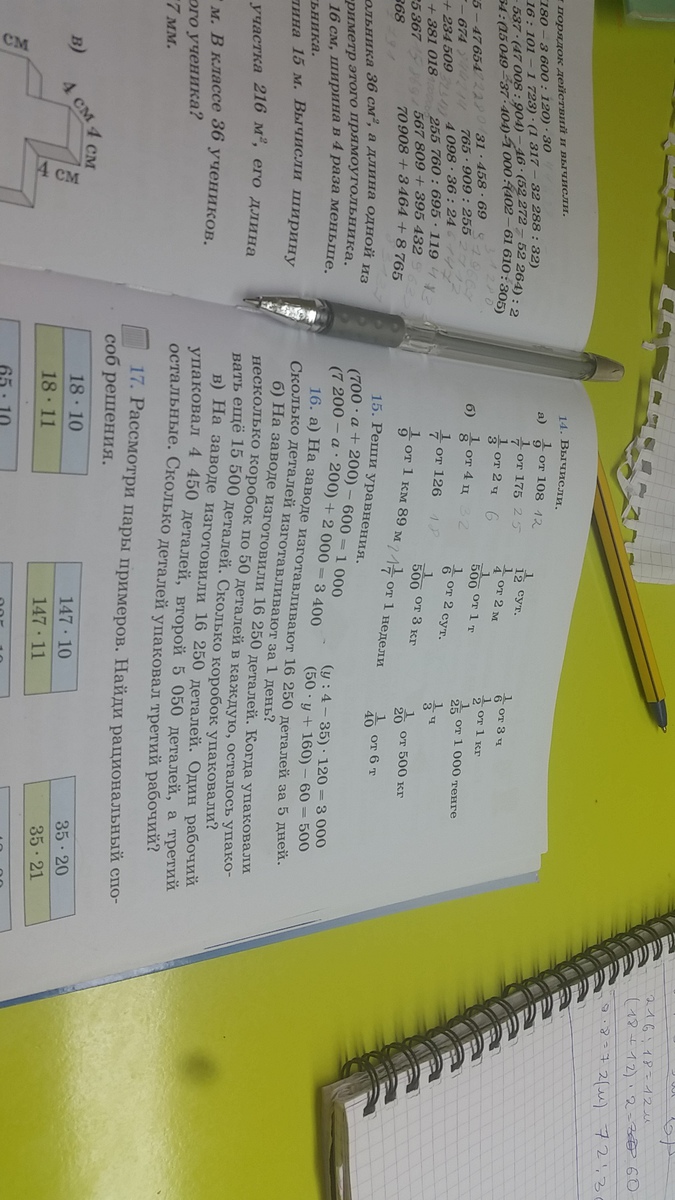 порядок действий и вычисли.
180 – 3 600 : 120) · 30
16 : 101 – 1 723) · (1 317 – 32 288 : 32)
537 · (47 008 : 904) – 46 · (52 272 – 52 264) : 2
31 · 458 · 69
765 · 909 : 255
+ 234 509
4 098 · 36 : 24
+ 381 018
255 760 : 695 · 119
567 809 + 395 432
70 908 + 3 464 + 8 765
ольника 36 см², а длина одной из
риметр этого прямоугольника.
16 см, ширина в 4 раза меньше.
участка 216 м², его длина
15 м. Вычисли ширину
м. В классе 36 учеников.
ого ученика?
7 мм.
в)
см
4 см
4 см
4 см
14. Вычисли.
а) 1/9 от 108 12
1/12 сут.
1/6 от 3 ч
1/7 от 175 25
1/4 от 2 м
1/2 от 1 кг
1/3 от 2 ч 6
1/500 от 1 т
1/25 от 1 000 тенге
б) 1/8 от 4 ц 32
1/6 от 2 сут.
1/3 ч
1/7 от 126 18
1/500 от 3 кг
1/20 от 500 кг
1/9 от 1 км 89 м
1/7 от 1 недели
1/40 от 6 т
15. Реши уравнения.
(700 · a + 200) – 600 = 1 000
(y : 4 – 35) · 120 = 3 000
(7 200 – a · 200) + 2 000 = 3 400
(50 · y + 160) – 60 = 500
16. а) На заводе изготавливают 16 250 деталей за 5 дней.
Сколько деталей изготавливают за 1 день?
б) На заводе изготовили 16 250 деталей. Когда упаковали
несколько коробок по 50 деталей в каждую, осталось упако-
вать ещё 15 500 деталей. Сколько коробок упаковали?
в) На заводе изготовили 16 250 деталей. Один рабочий
упаковал 4 450 деталей, второй 5 050 деталей, а третий
остальные. Сколько деталей упаковал третий рабочий?
17. Рассмотри пары примеров. Найди рациональный спо-
соб решения.
18 · 10
18 · 11
147 · 10
147 · 11
35 · 20
35 · 21
65 · 10
216 : 18 = 12 м
(18 + 12) · 2 = 60
9 · 8 = 72(м) 72 : 3